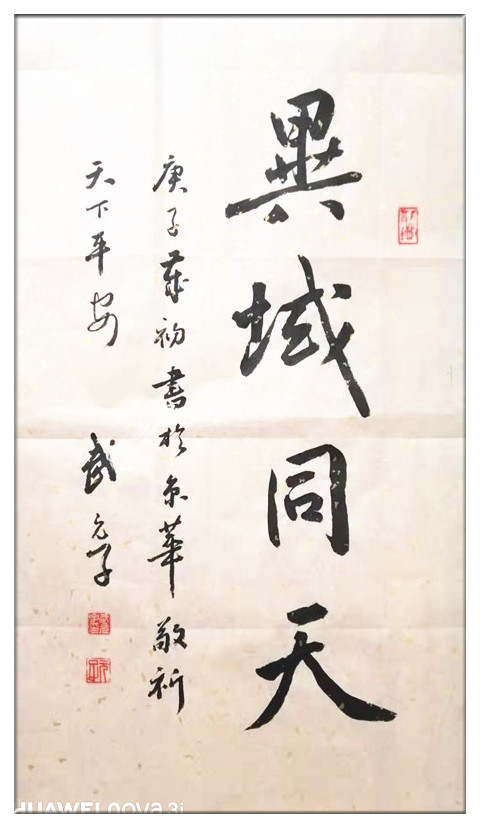 異域同天
庚子歲初書於京華敬祈
天下平安 武元子
HUAWEI nova 3i